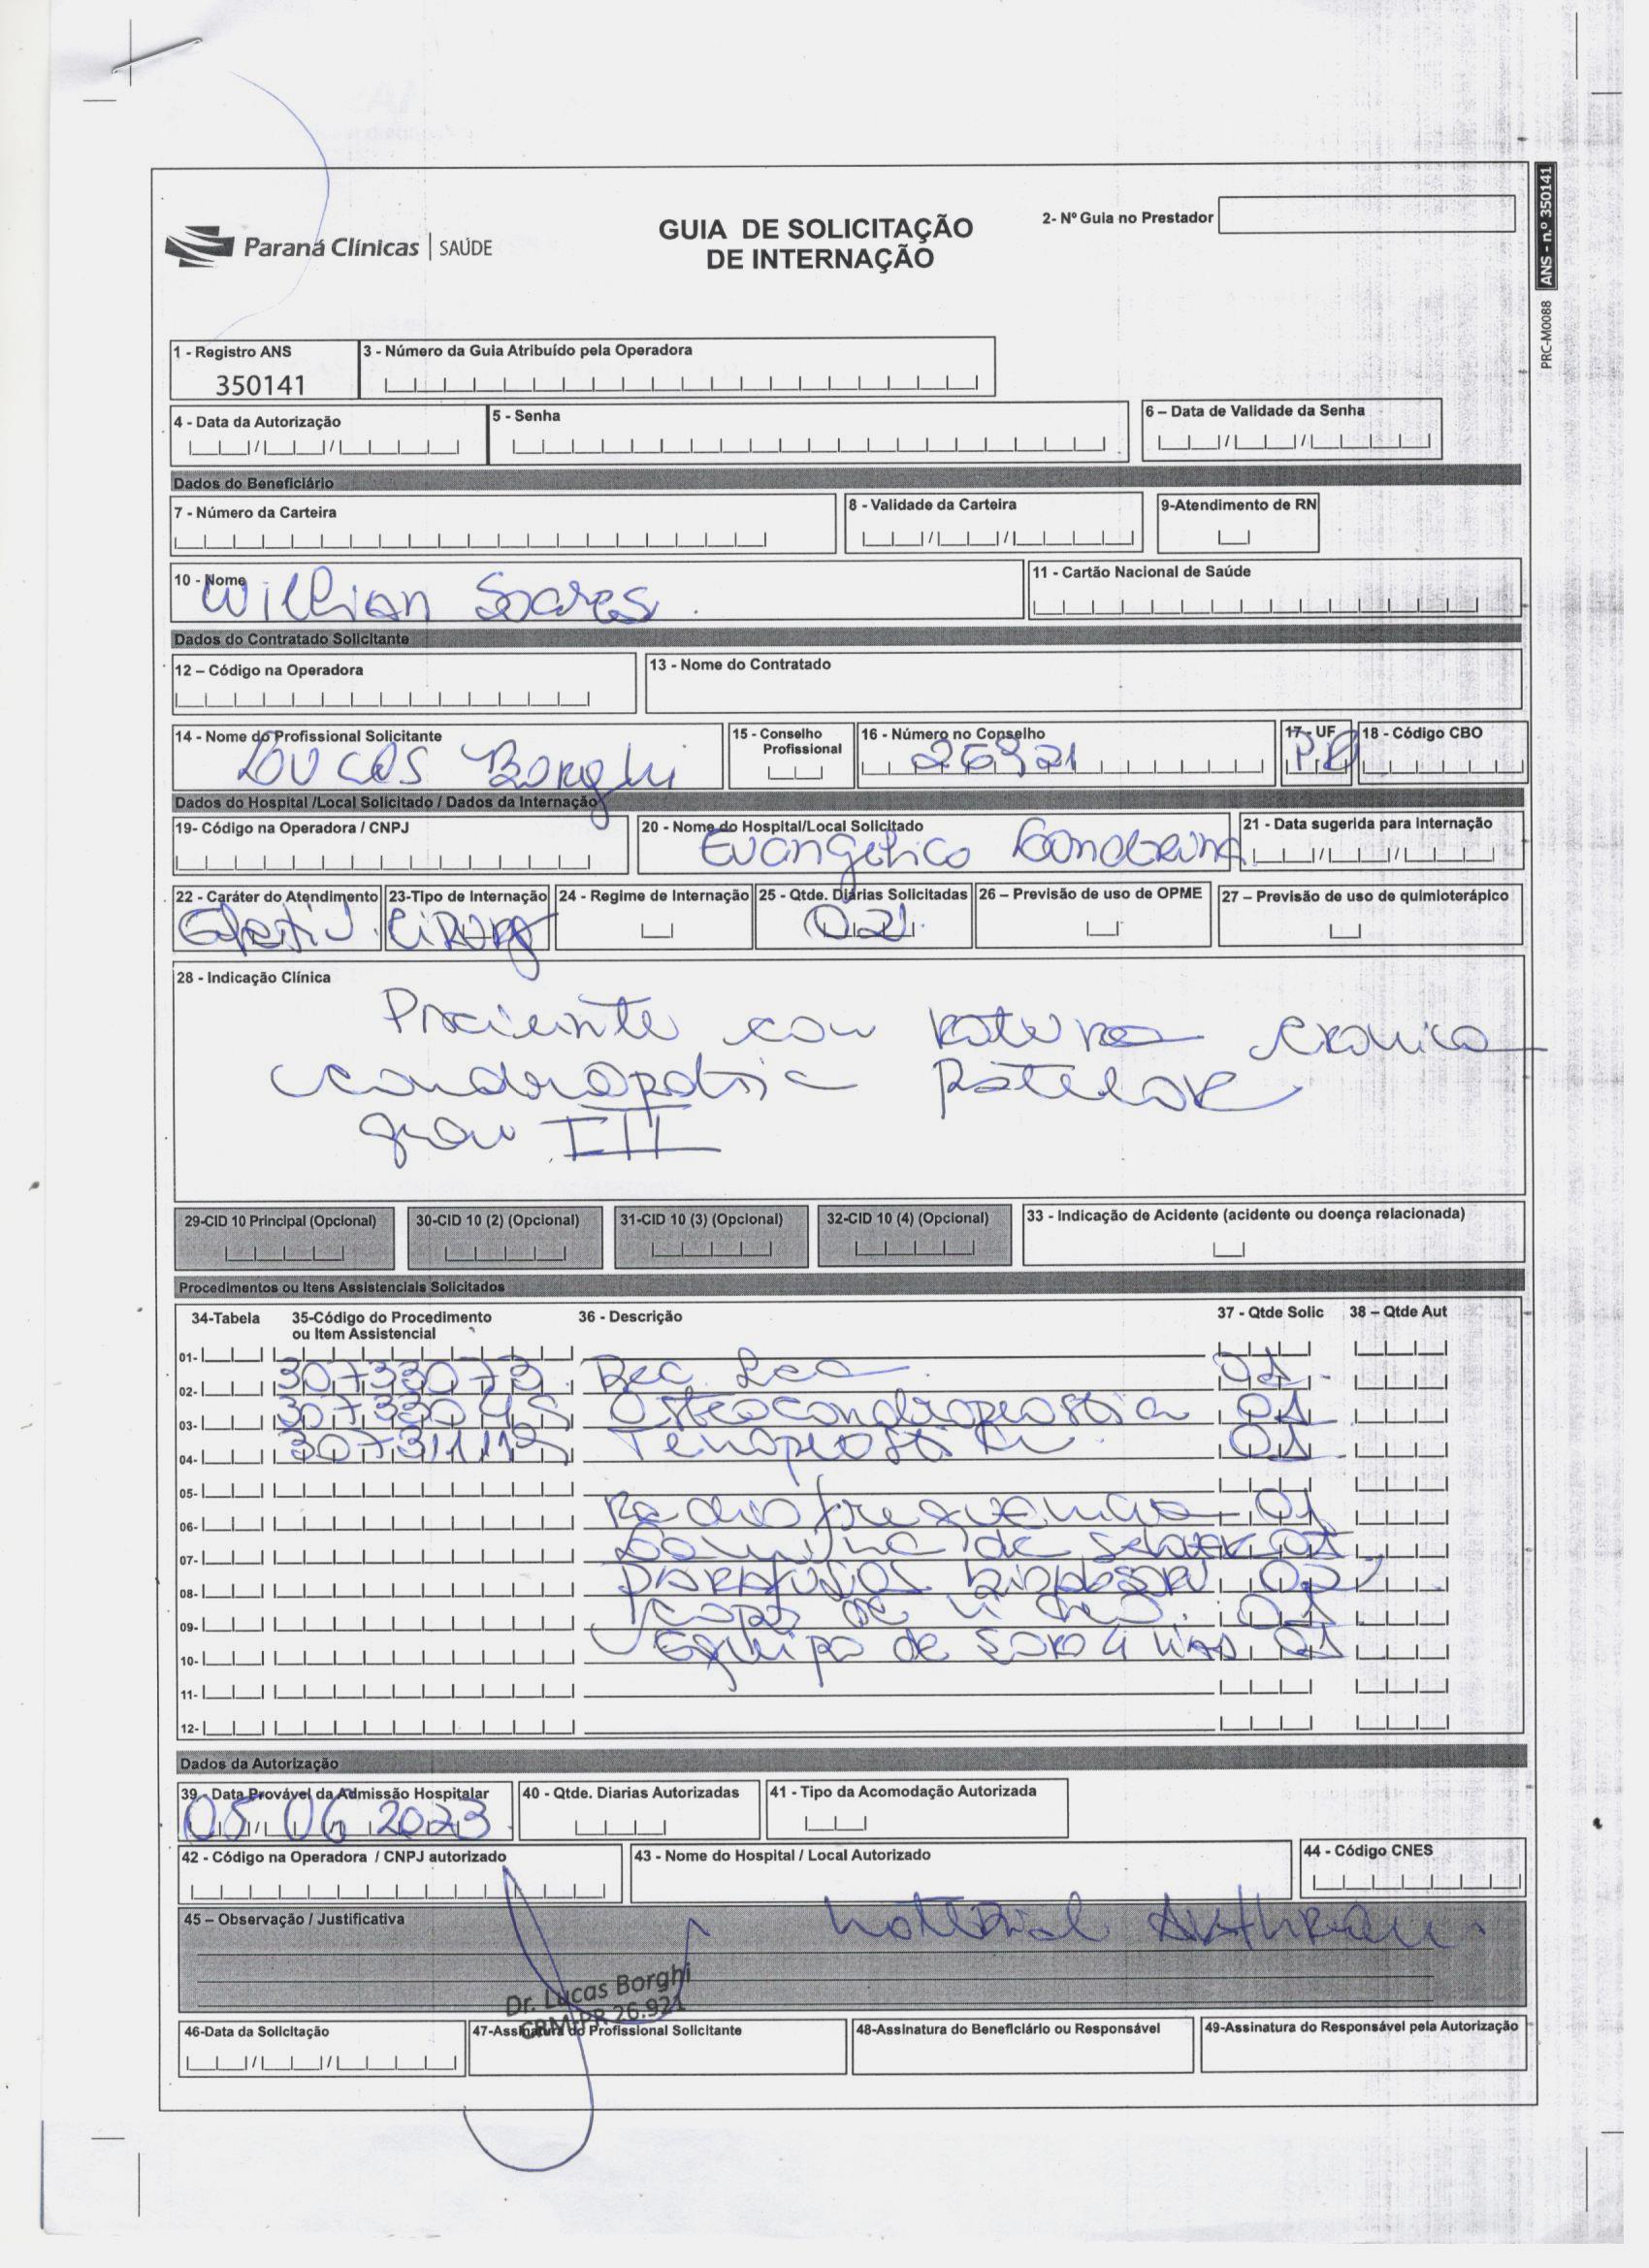 Paraná Clínicas | SAÚDE
GUIA DE SOLICITAÇÃO
DE INTERNAÇÃO
2- Nº Guia no Prestador
ANS - n.º 350141
PRC-M0088
1 - Registro ANS
350141
3 - Número da Guia Atribuído pela Operadora
4 - Data da Autorização
5 - Senha
6 – Data de Validade da Senha
Dados do Beneficiário
7 - Número da Carteira
8 - Validade da Carteira
9-Atendimento de RN
10 - Nome
Willian Soares
11 - Cartão Nacional de Saúde
Dados do Contratado Solicitante
12 – Código na Operadora
13 - Nome do Contratado
14 - Nome do Profissional Solicitante
Lucas Borghi
15 - Conselho
Profissional
16 - Número no Conselho
26921
17 - UF
PR
18 - Código CBO
Dados do Hospital /Local Solicitado / Dados da Internação
19- Código na Operadora / CNPJ
20 - Nome do Hospital/Local Solicitado
Evangélico Londrina
21 - Data sugerida para Internação
22 - Caráter do Atendimento
23-Tipo de Internação
24 - Regime de Internação
25 - Qtde. Diárias Solicitadas
02
26 – Previsão de uso de OPME
27 – Previsão de uso de quimioterápico
28 - Indicação Clínica
Paciente com rotura cronica
condropatia patelar
grau III
29-CID 10 Principal (Opcional)
30-CID 10 (2) (Opcional)
31-CID 10 (3) (Opcional)
32-CID 10 (4) (Opcional)
33 - Indicação de Acidente (acidente ou doença relacionada)
Procedimentos ou Itens Assistenciais Solicitados
34-Tabela
35-Código do Procedimento
ou Item Assistencial
36 - Descrição
37 - Qtde Solic
38 – Qtde Aut
01-
02- 30733073 Rec. Lca 01
03- 30733045 Osteocondroplastia 01
04- 30731119 01
05-
06- Radiofrequencia 01
07- Lamina de Shaver 01
08- parafusos 02
09- 01
10- Equipo de soro 4 vias 01
11-
12-
Dados da Autorização
39 - Data Provável da Admissão Hospitalar
05 06 2023
40 - Qtde. Diarias Autorizadas
41 - Tipo da Acomodação Autorizada
42 - Código na Operadora / CNPJ autorizado
43 - Nome do Hospital / Local Autorizado
44 - Código CNES
45 – Observação / Justificativa
Material Arthrex
Dr. Lucas Borghi
CRM-PR 26.921
46-Data da Solicitação
47-Assinatura do Profissional Solicitante
48-Assinatura do Beneficiário ou Responsável
49-Assinatura do Responsável pela Autorização